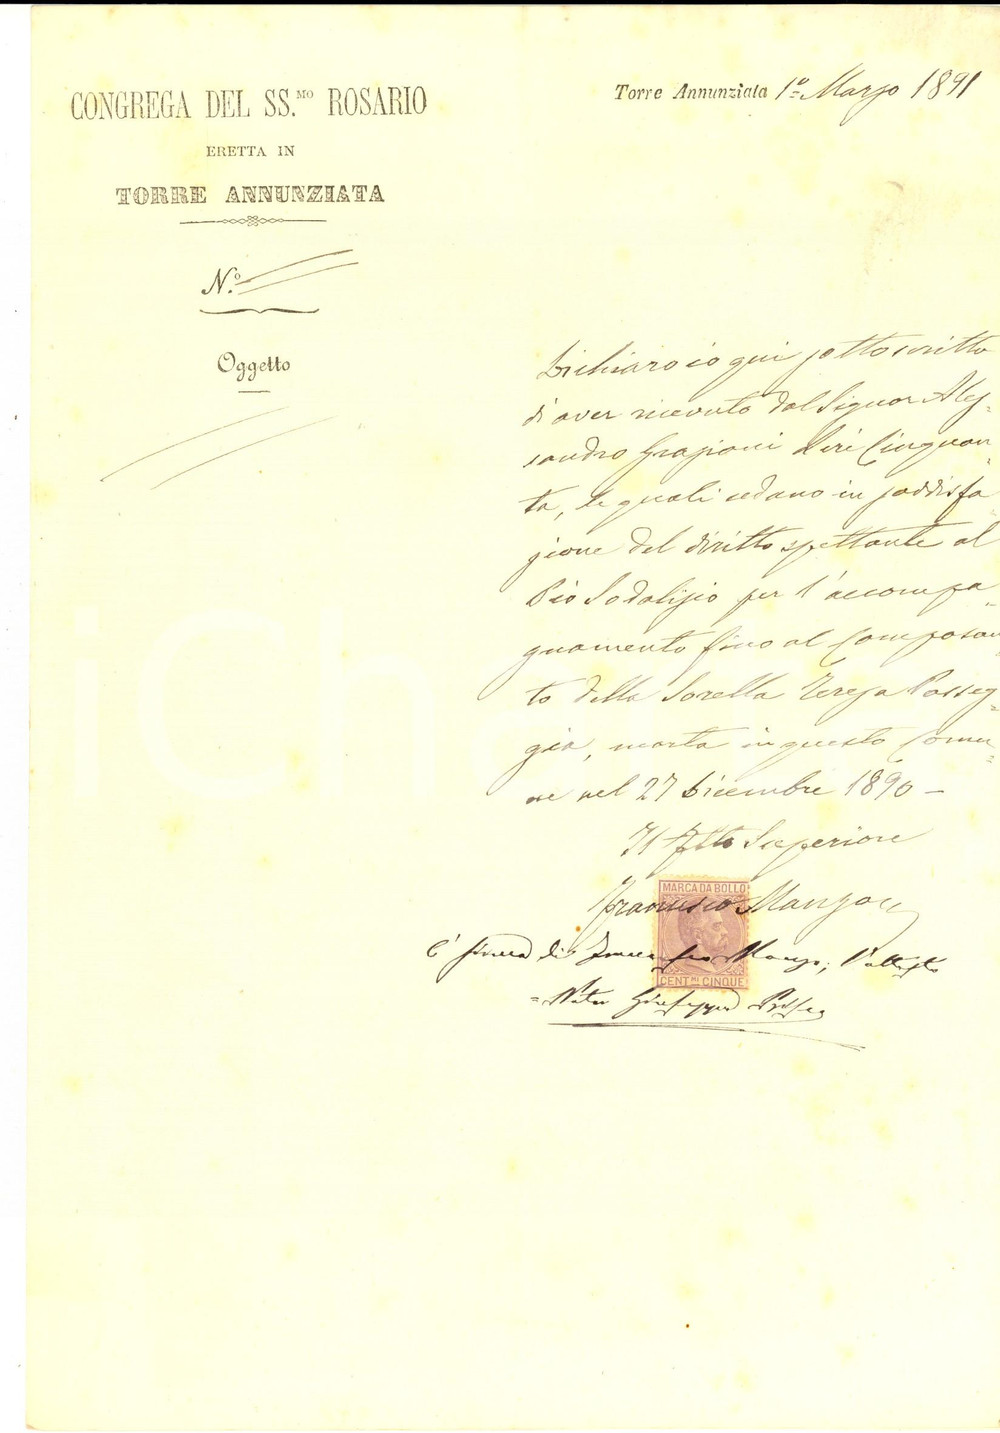 CONGREGA DEL SS.MO ROSARIO
ERETTA IN
TORRE ANNUNZIATA
N.º
Oggetto
Torre Annunziata 1º Marzo 1891
Dichiaro io qui sottoscritto
di aver ricevuto dal Signor Ales=
sandro Graziani Lire Cinquan=
ta, le quali cedano in soddisfa=
zione del diritto spettante al
Pio Sodalizio per l'accompa=
gnamento fino al Camposan=
to della Sorella Teresa
morta in questo Comu=
ne nel 27 Dicembre 1890 –
Il Superiore
Francesco Manzo
MARCA DA BOLLO
CENT.MI CINQUE
È firma di Francesco Manzo, l'attesto
= Notar Giuseppe
iCha